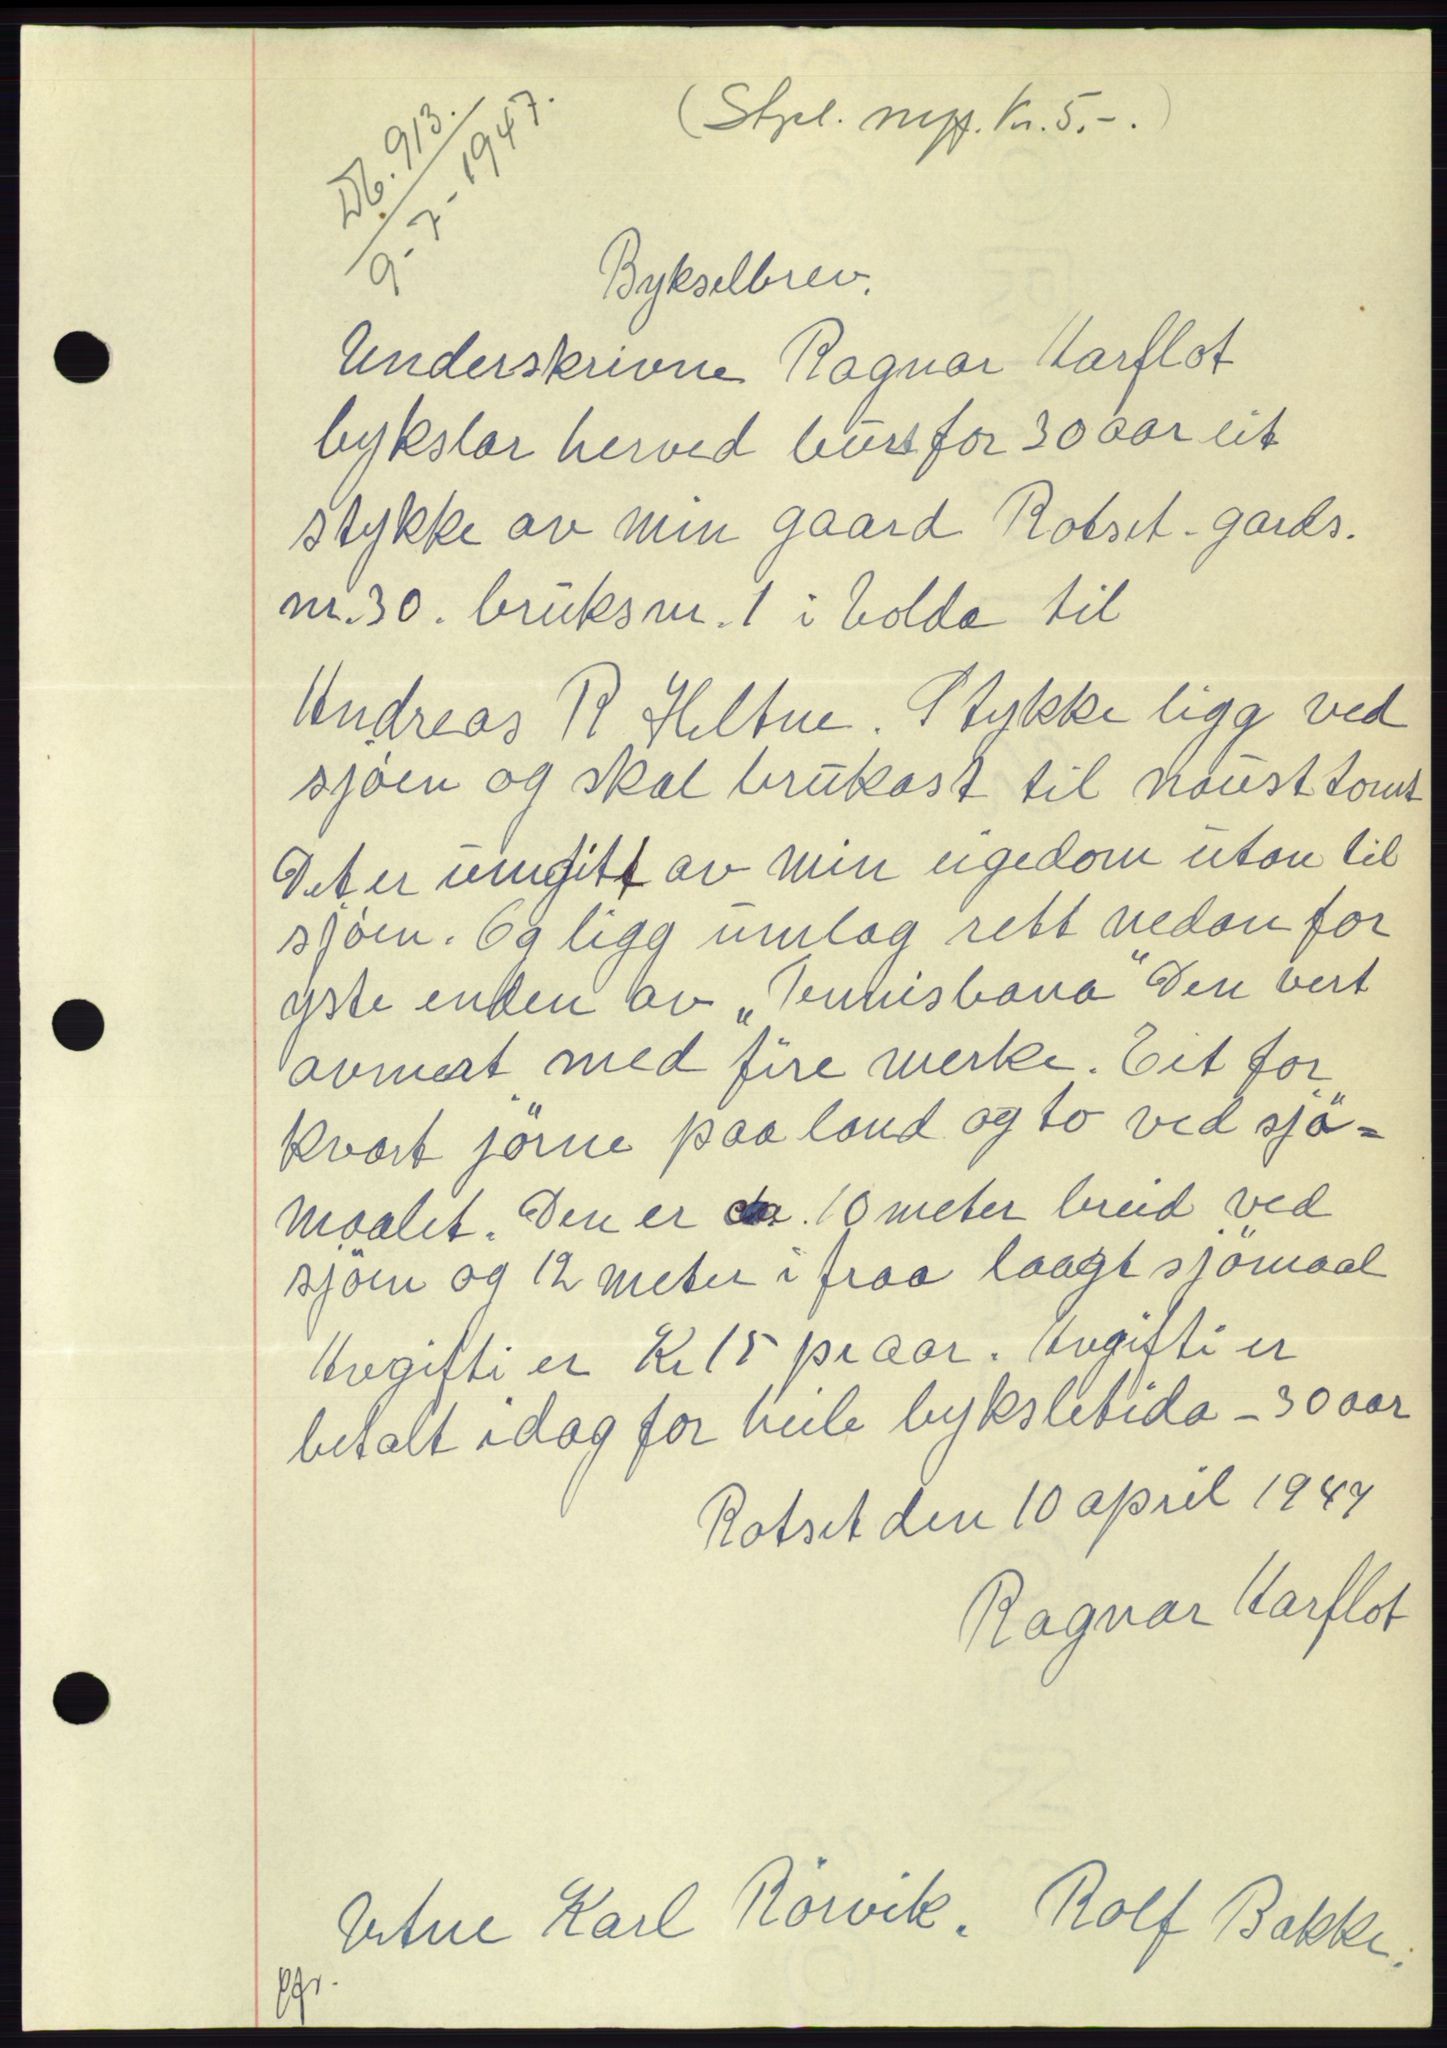 Db. 913.
9-7-1947.
(Stpl. mgf. Kr. 5.-.)
Bykselbrev.
Underskrivne Ragnar Aarflot
bykslar herved burt for 30 aar eit
stykke av min gaard Rotset - gards.
nr. 30. bruksnr. 1 i Volda til
Andreas R Heltne. Stykke ligg ved
sjøen og skal brukast til nausttomt
Det er umgitt av min eigedom utan til
sjøen. Og ligg umlag rett nedan for
yste enden av „Tennisbana" Den vert
avmerkt med fire merke. Eit for
kvart jörne paa land og to ved sjö=
maalet. Den er ca. 10 meter breid ved
sjöen og 12 meter i fraa laagt sjömaal
Avgifti er Kr 15 pr aar. Avgifti er
betalt idag for heile byksletida - 30 aar
Rotset den 10 april 1947
Ragnar Aarflot
Vitne Karl Rörvik. Rolf Bakke.